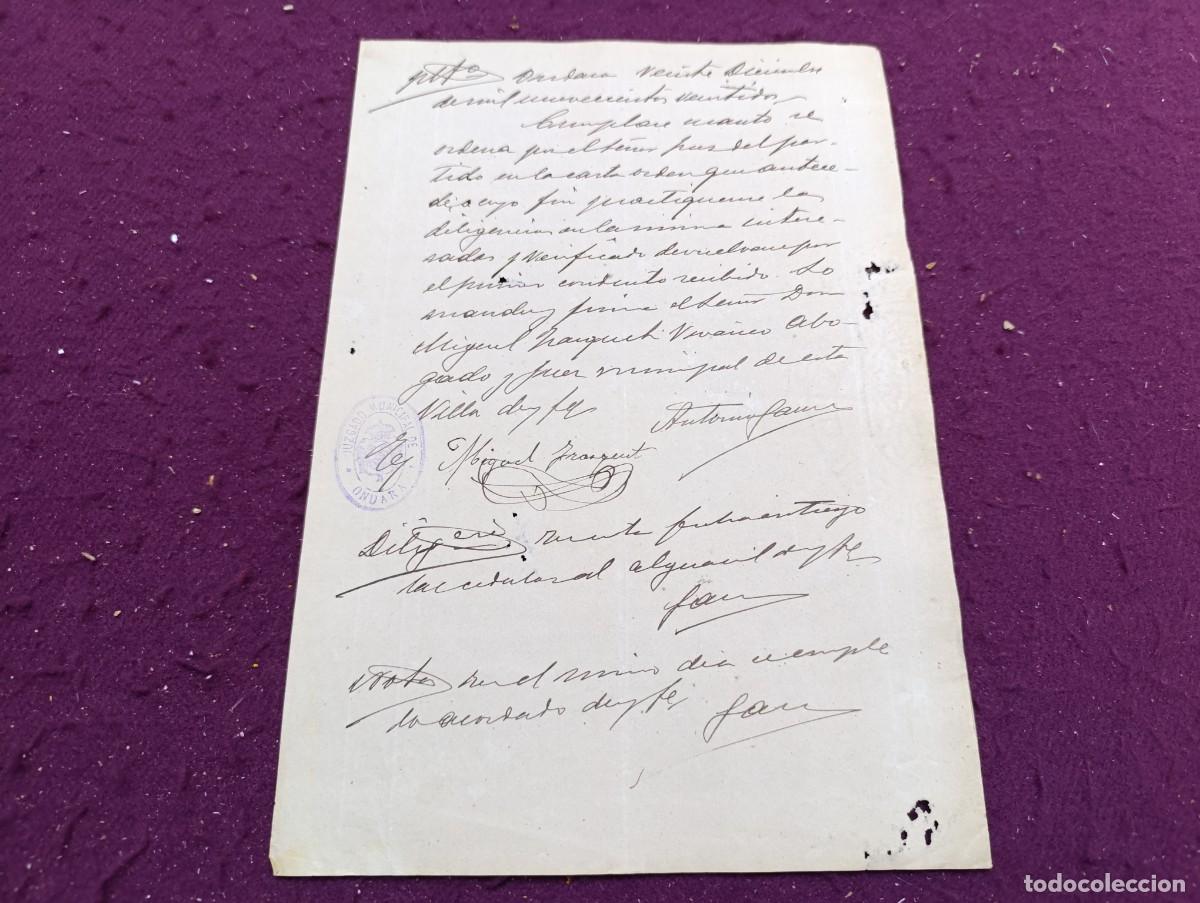 Ondara veinte Diciembre
de mil nuevecientos veintidos
Cumplase cuanto se
ordena por el Señor Juez del par-
tido en la carta orden que antece-
de, a cuyo fin practiquense las
diligencias en la misma intere-
sadas y verificado devuelvase por
el mismo conducto recibido. Lo
manda y firma el Señor Don
Miguel Vivanco Abo-
gado y Juez municipal de esta
Villa doy fe
Antonio
JUZGADO MUNICIPAL DE
ONDARA
Miguel
Diligencia en esta fecha entrego
las cedulas al alguacil doy fe
Nota en el mismo dia se cumple
lo acordado doy fe
todocoleccion